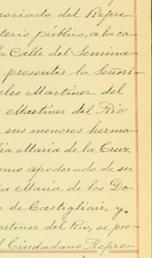 ociado del Repre-
terio público, á la ca
la Calle del Semina
presentes la Señori
eles Martinez del
Martinez del Río
sus menores herma
ia María de la Cruz
omo apoderado de su
ia María de los Do
de Castiglioni, y
artinez del Río, se pro
l Ciudadano Repre-